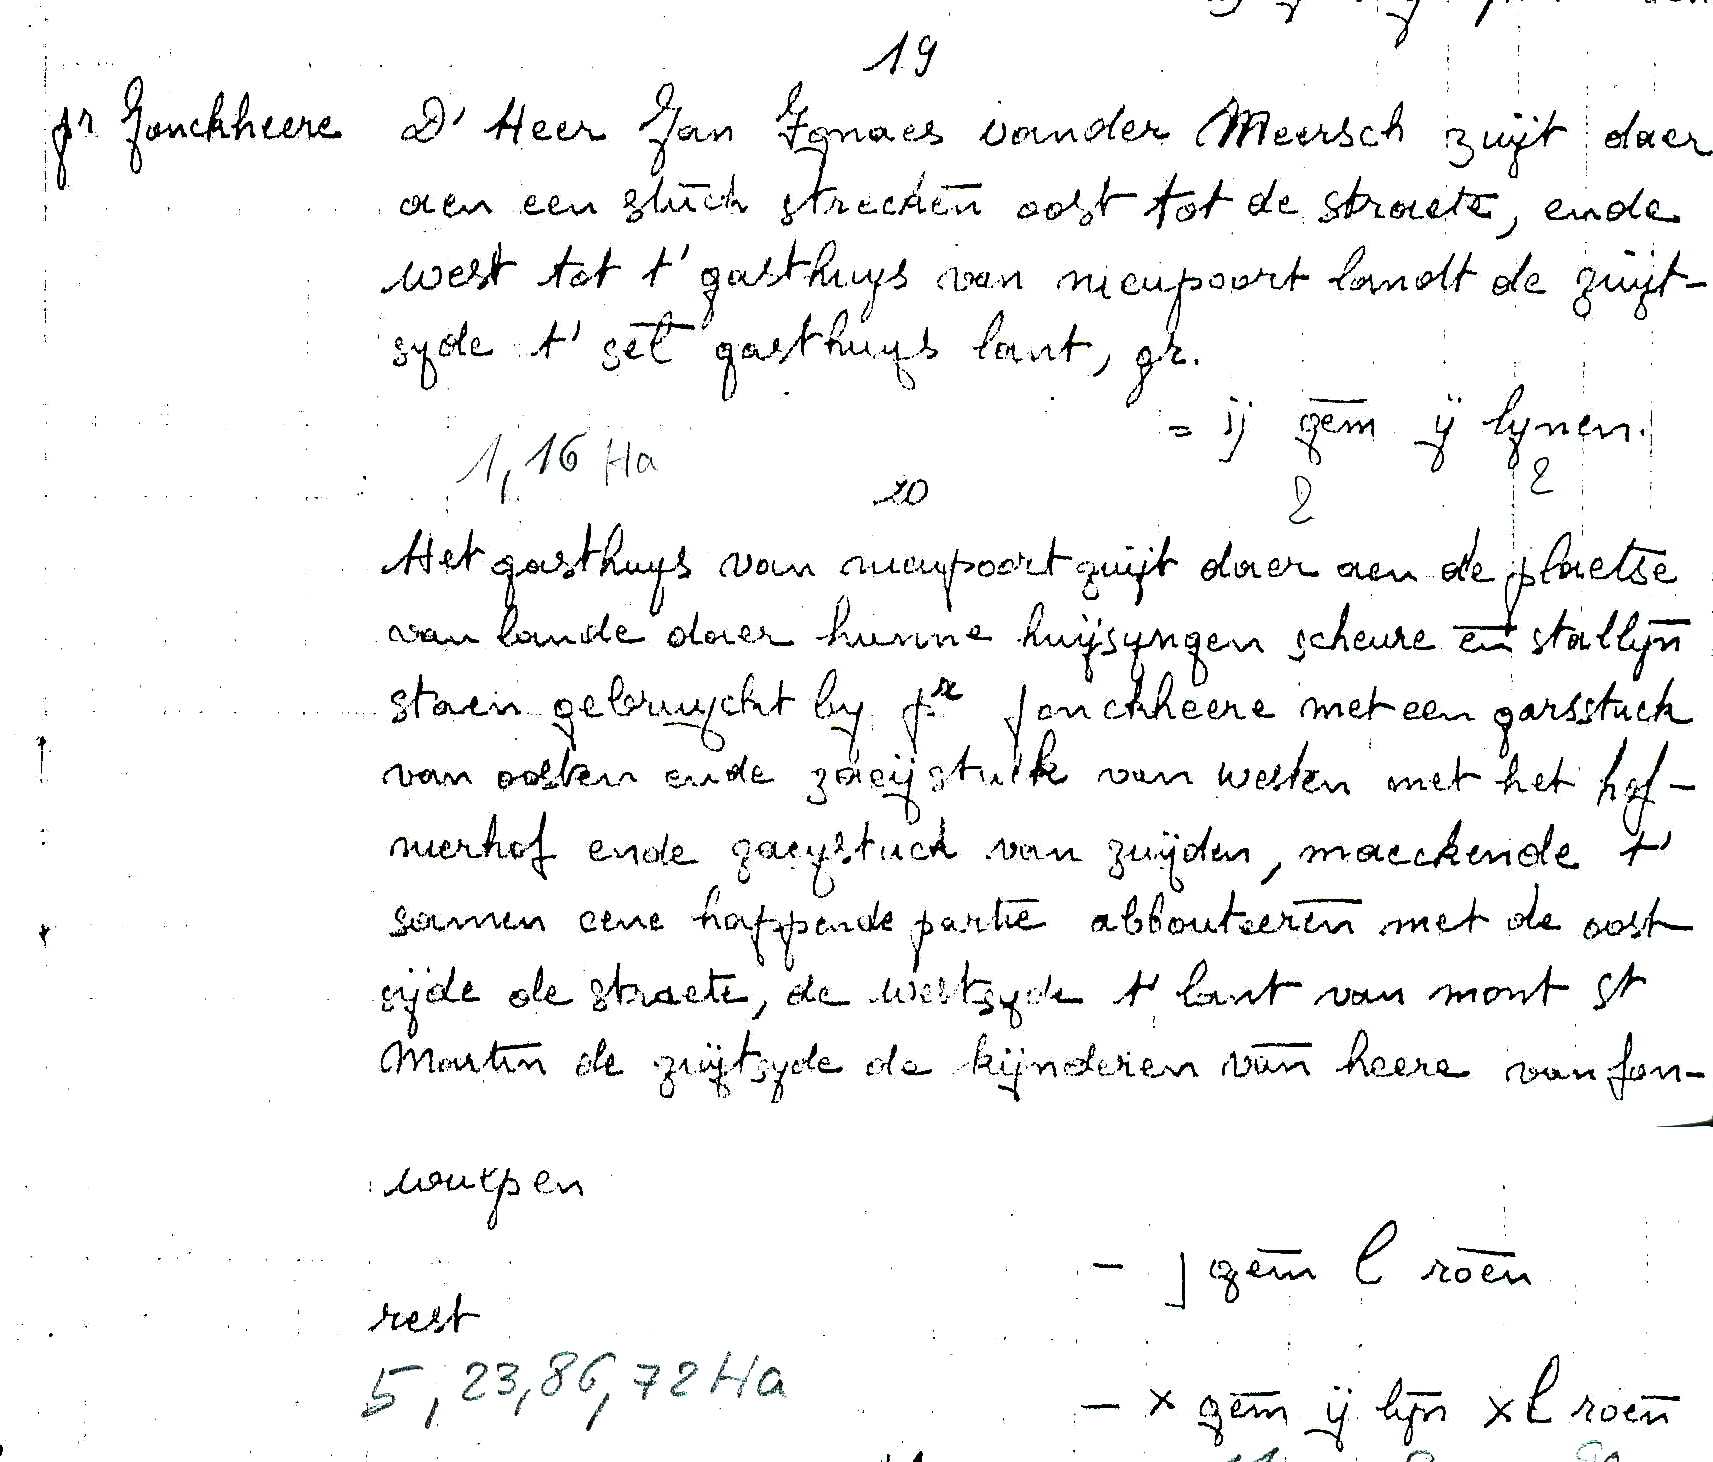 19
pr Jonckheere D' Heer Jan Ignaes vander Meersch zuijt daer
aen een stuck strecken̄ oost tot de straete, ende
west tot t' gasthuys van nieupoort landt de zuijt-
syde t' sel̄ gasthuys lant, gr.
= ij gem̄ ij lynen.
1,16 Ha
2 2
20
Het gasthuys van nieupoort zuijt daer aen de plaetse
van lande daer hunne huijsyngen scheure en̄ stallyn̄
staen gebruyckt by pr Jonckheere met een garsstuck
van oosten ende zaeijstuck van westen met het hof-
nierhof ende zaeystuck van zuijden, maeckende t'
samen eene happende partie abbouteeren̄ met de oost
sijde de straete, de westsyde t' lant van mont st
Martin de zuijtsyde de kijnderen van̄ heere van fon-
wulpen
- j gem̄ l roen̄
rest
5,23,86,72 Ha
- x gem̄ ij lyn̄ xl roen̄